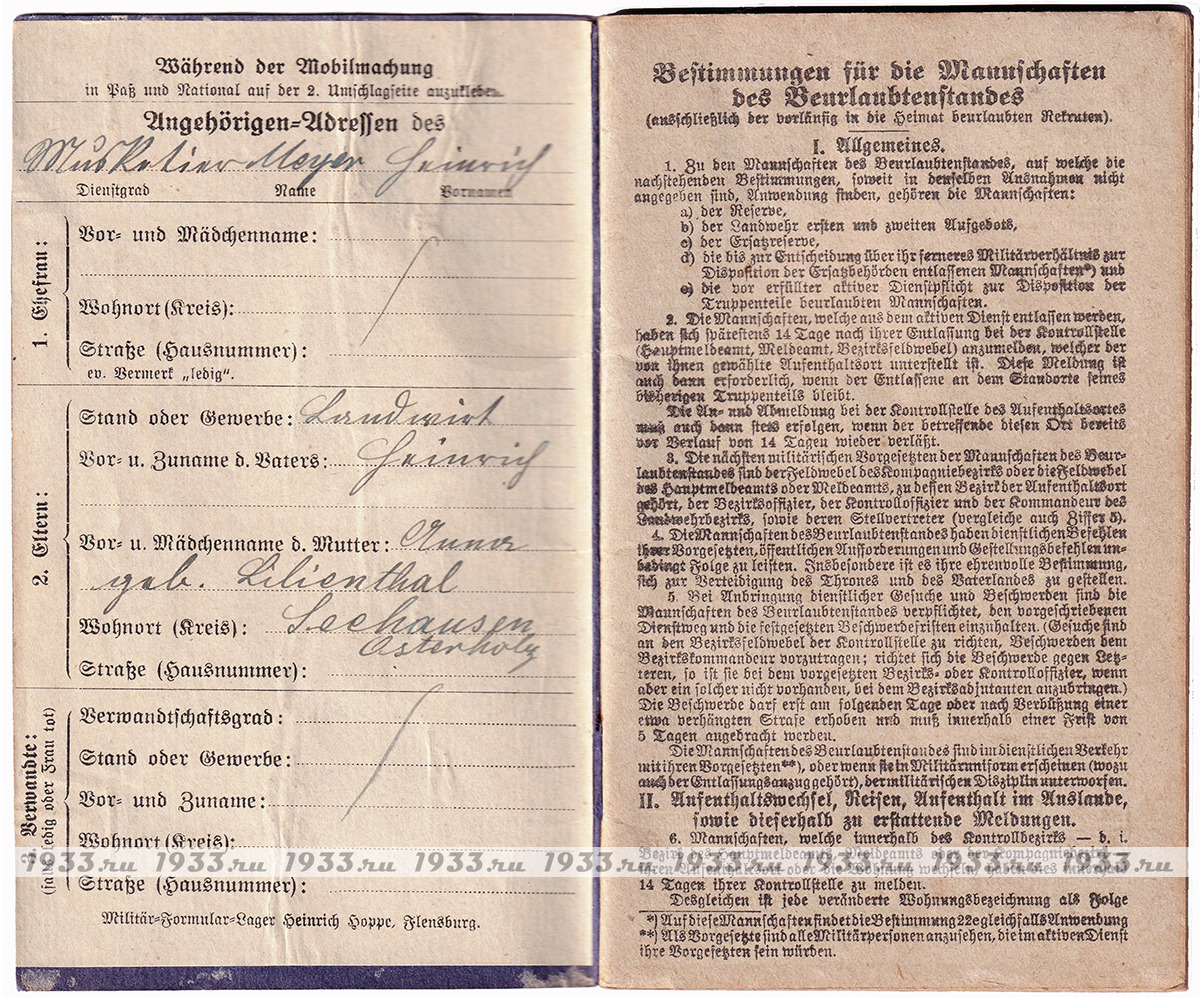 Während der Mobilmachung
in Paß und National auf der 2. Umschlagseite anzukleben.
Angehörigen-Adressen des
Musketier Meyer Heinrich
Dienstgrad Name Vornamen
1. Ehefrau:
Vor- und Mädchenname:
Wohnort (Kreis):
Straße (Hausnummer):
ev. Vermerk „ledig“.
2. Eltern:
Stand oder Gewerbe: Landwirt
Vor- u. Zuname d. Vaters: Heinrich
Vor- u. Mädchenname d. Mutter: Anna
geb. Lilienthal
Wohnort (Kreis): Seehausen
Osterholz
Straße (Hausnummer):
Verwandte:
(falls ledig oder Frau tot)
Verwandtschaftsgrad:
Stand oder Gewerbe:
Vor- und Zuname:
Wohnort (Kreis):
Straße (Hausnummer):
Militär-Formular-Lager Heinrich Hoppe, Flensburg.
Bestimmungen für die Mannschaften
des Beurlaubtenstandes
(ausschließlich der vorläufig in die Heimat beurlaubten Rekruten).
I. Allgemeines.
1. Zu den Mannschaften des Beurlaubtenstandes, auf welche die
nachstehenden Bestimmungen, soweit in denselben Ausnahmen nicht
angegeben sind, Anwendung finden, gehören die Mannschaften:
a) der Reserve,
b) der Landwehr ersten und zweiten Aufgebots,
c) der Ersatzreserve,
d) die bis zur Entscheidung über ihr ferneres Militärverhältnis zur
Disposition der Ersatzbehörden entlassenen Mannschaften*) und
e) die vor erfüllter aktiver Dienstpflicht zur Disposition der
Truppenteile beurlaubten Mannschaften.
2. Die Mannschaften, welche aus dem aktiven Dienst entlassen werden,
haben sich spätestens 14 Tage nach ihrer Entlassung bei der Kontrollstelle
(Hauptmeldeamt, Meldeamt, Bezirksfeldwebel) anzumelden, welcher der
von ihnen gewählte Aufenthaltsort unterstellt ist. Diese Meldung ist
auch dann erforderlich, wenn der Entlassene an dem Standorte seines
bisherigen Truppenteils bleibt.
Die An- und Abmeldung bei der Kontrollstelle des Aufenthaltsortes
muß auch dann stets erfolgen, wenn der betreffende diesen Ort bereits
vor Verlauf von 14 Tagen wieder verläßt.
3. Die nächsten militärischen Vorgesetzten der Mannschaften des Beur-
laubtenstandes sind der Feldwebel des Kompagniebezirks oder die Feldwebel
des Hauptmeldeamts oder Meldeamts, zu dessen Bezirk der Aufenthaltsort
gehört, der Bezirksoffizier, der Kontrolloffizier und der Kommandeur des
Landwehrbezirks, sowie deren Stellvertreter (vergleiche auch Ziffer 5).
4. Die Mannschaften des Beurlaubtenstandes haben dienstlichen Befehlen
ihrer Vorgesetzten, öffentlichen Aufforderungen und Gestellungsbefehlen un-
bedingt Folge zu leisten. Insbesondere ist es ihre ehrenvolle Bestimmung,
sich zur Verteidigung des Thrones und des Vaterlandes zu gestellen.
5. Bei Anbringung dienstlicher Gesuche und Beschwerden sind die
Mannschaften des Beurlaubtenstandes verpflichtet, den vorgeschriebenen
Dienstweg und die festgesetzten Beschwerdefristen einzuhalten. (Gesuche sind
an den Bezirksfeldwebel der Kontrollstelle zu richten, Beschwerden dem
Bezirkskommandeur vorzutragen; richtet sich die Beschwerde gegen Letz-
teren, so ist sie bei dem vorgesetzten Bezirks- oder Kontrolloffizier, wenn
aber ein solcher nicht vorhanden, bei dem Bezirksadjutanten anzubringen.)
Die Beschwerde darf erst am folgenden Tage oder nach Verbüßung einer
etwa verhängten Strafe erhoben und muß innerhalb einer Frist von
5 Tagen angebracht werden.
Die Mannschaften des Beurlaubtenstandes sind im dienstlichen Verkehr
mit ihren Vorgesetzten**), oder wenn sie in Militäruniform erscheinen (wozu
auch der Entlassungsanzug gehört), der militärischen Disziplin unterworfen.
II. Aufenthaltswechsel, Reisen, Aufenthalt im Auslande,
sowie dieserhalb zu erstattende Meldungen.
6. Mannschaften, welche innerhalb des Kontrollbezirks — d. i.
Bezirk des Hauptmeldeamts, Meldeamts oder der Kompagniebezirk
ihren Aufenthaltsort oder die Wohnung wechseln, haben dies innerhalb
1933.ru 1933.ru 1933.ru 1933.ru 1933.ru 1933.ru 1933.ru 1933.ru 1933.ru
14 Tagen ihrer Kontrollstelle zu melden.
Desgleichen ist jede veränderte Wohnungsbezeichnung als Folge
*) Auf diese Mannschaften findet die Bestimmung 22e gleichfalls Anwendung
**) Als Vorgesetzte sind alle Militärpersonen anzusehen, die im aktiven Dienst
ihre Vorgesetzten sein würden.